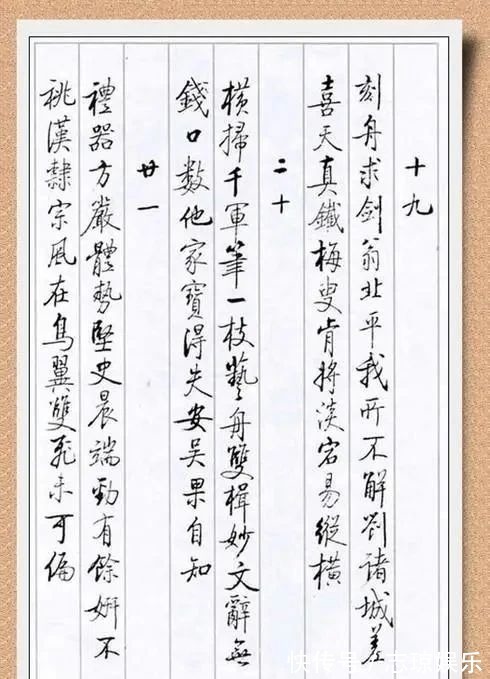 十九
刻舟求剑翁北平我所不解劉诸城差
喜天真鐵梅叟肯将淡宕易縱横
二十
横掃千軍筆一枝藝舟雙楫妙文辭無
錢口數他家寶得失安吳果自知
廿一
禮器方嚴體勢堅史晨端勁有餘妍不
祧漢隸宗風在鳥翼雙飛未可偏
快传号
娱乐